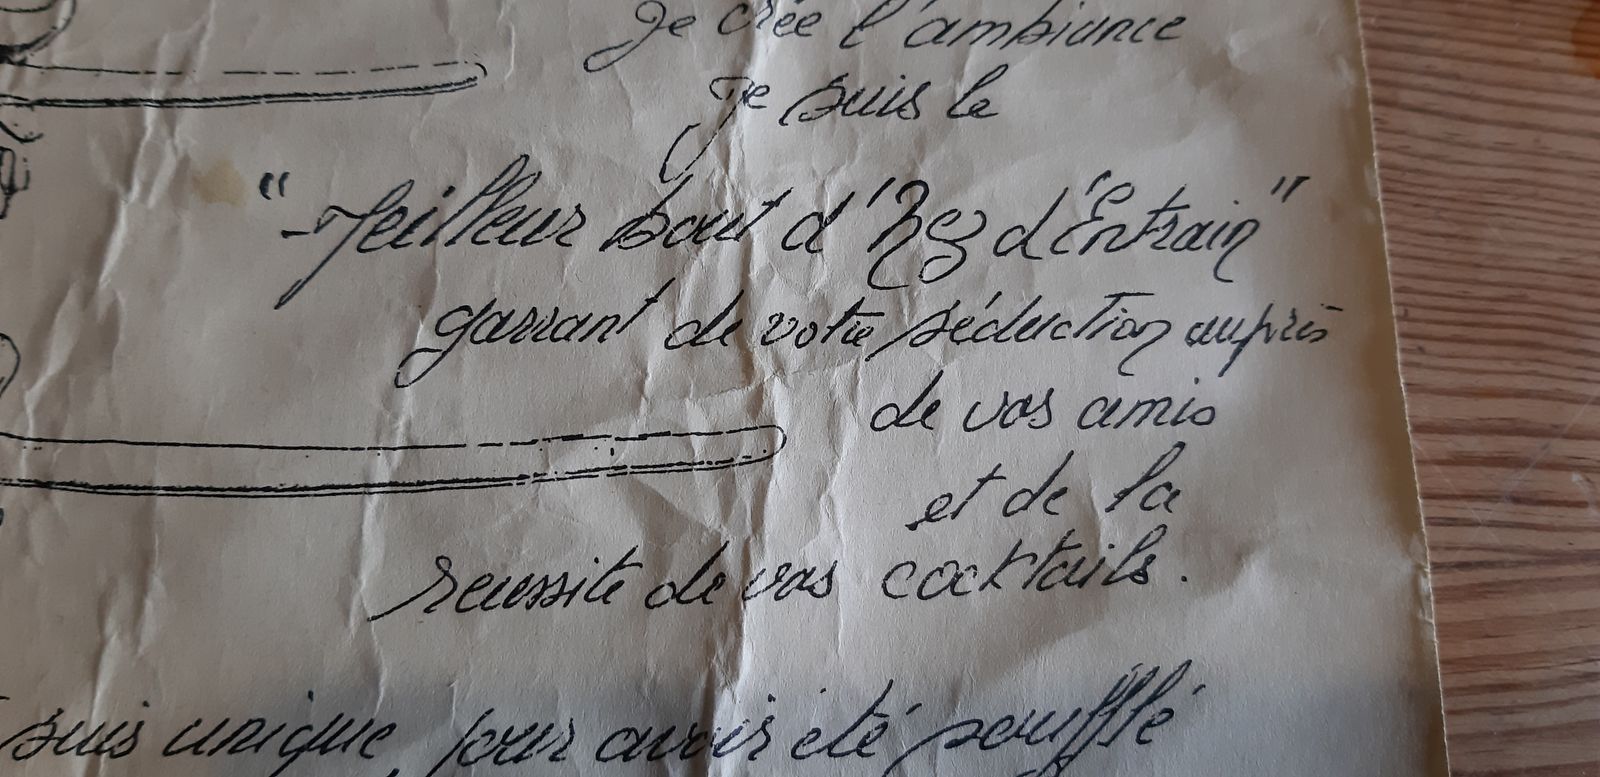 Je crée l'ambiance
Je suis le
"Meilleur bout d'Nez d'Entrain"
garrant de votre séduction auprès
de vos amis
et de la
reussite de vos cocktails.
suis unique, pour avoir été soufflé